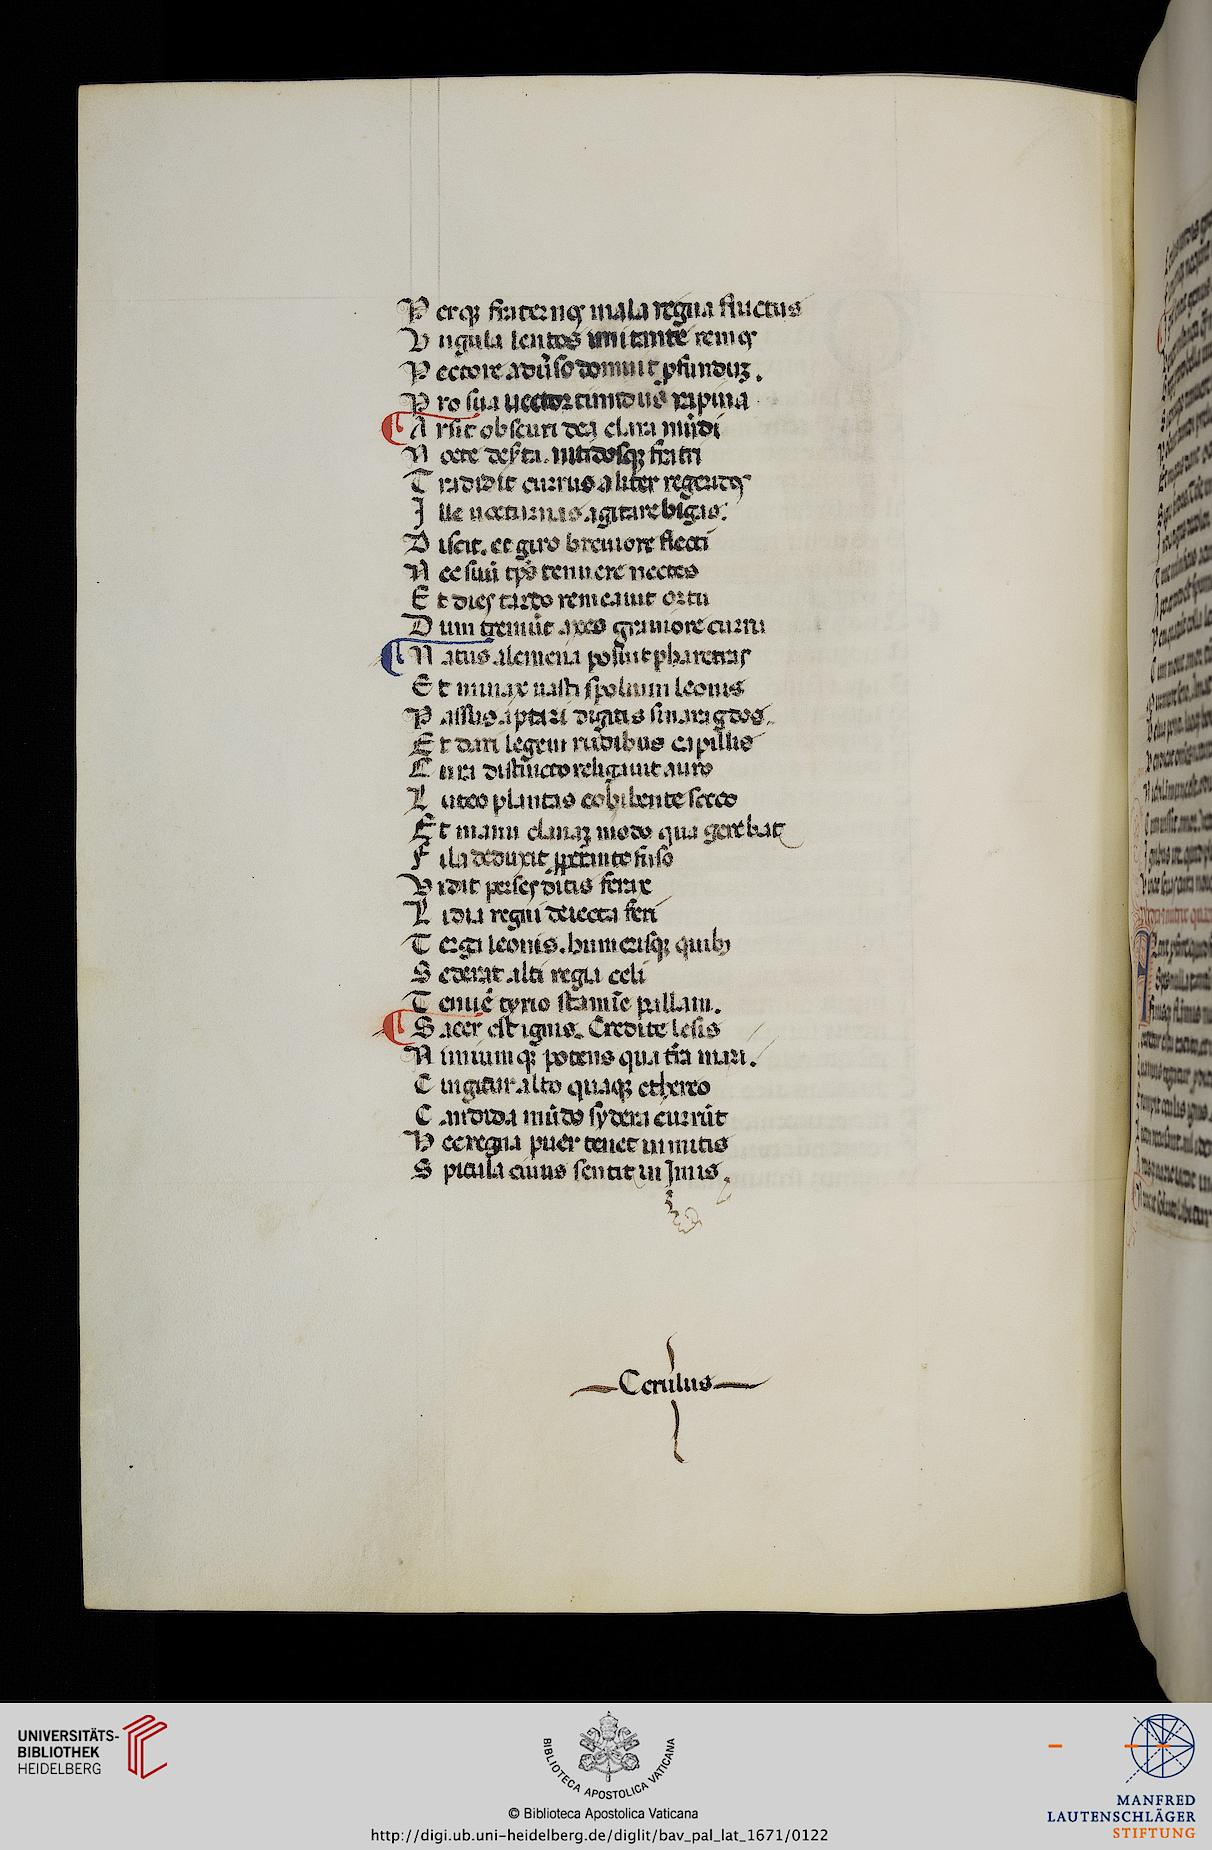 P erq; fraternos mala regna fluctus
U ngula lentos imitante remos
P ectore aduerso domuit pfunduz.
P ro sua uector timidus rapina
A rsit obscuri dea clara mundi
N octe deserta. nitidosq; fratri
T radidit currus aliter regendos
I lle nocturnas agitare bigas.
D iscit. et giro breuiore flecti
N ec suum tps tenuere noctes
E t dies tardo remeauit ortu
D um tremunt axes grauiore curru
N atus alcmena posuit pharetras
E t minax uasti spolium leonis
P assus aptari digitis smaragdos.
E t dari legem rudibus capillis
C rura distincto religauit auro
L uteo plantas cohibente socco
E t manu clauaz modo qua gerebat
F ila deduxit pperante fuso
U idit perses ditis ferax
L idia regni deiecta feri
T ergi leonis. humerisq; quib;
S ederat alti regia celi
T enuem tyrio stamine pallam.
S acer est ignis. Credite lesis
N imiumq; potens qua terra mari.
C ingitur alto quaq; ethereo
C andida mundo sydera currunt
H ec regna puer tenet inmitis
S picula cuius sentit in Imis
Cerulus
UNIVERSITÄTS-
BIBLIOTHEK
HEIDELBERG
BIBLIOTECA APOSTOLICA VATICANA
© Biblioteca Apostolica Vaticana
http://digi.ub.uni-heidelberg.de/diglit/bav_pal_lat_1671/0122
MANFRED
LAUTENSCHLÄGER
STIFTUNG